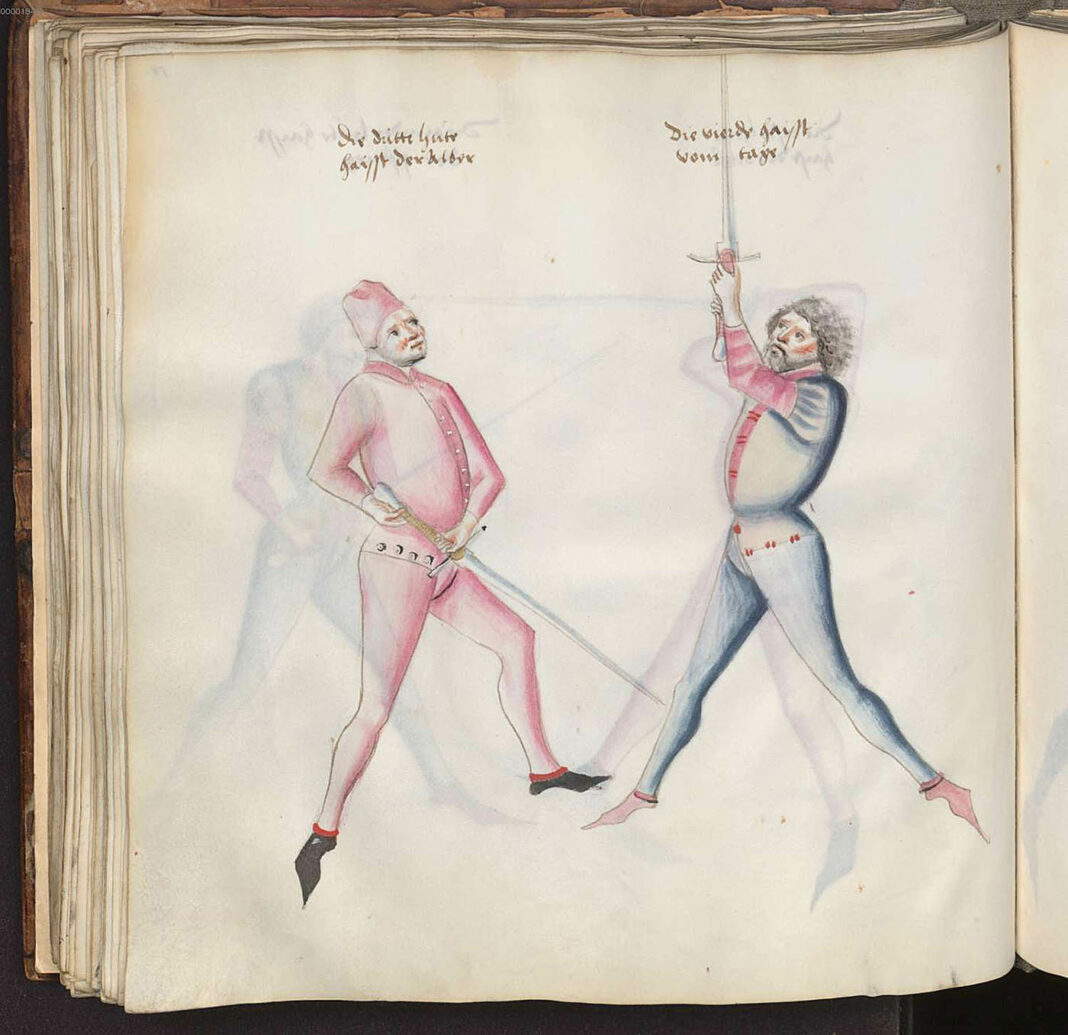 die dritte hute
haisst der Alber
Die vierde haisst
vom tage